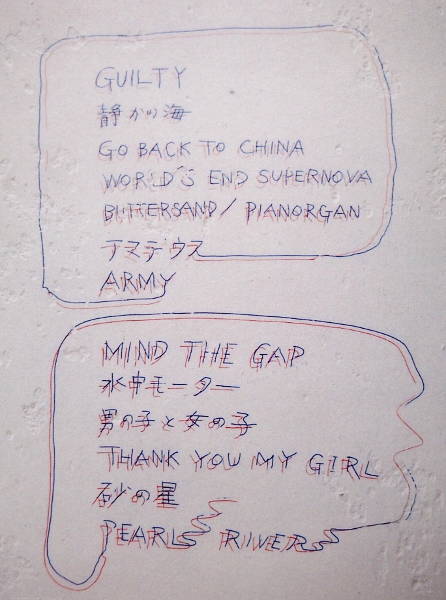 GUILTY
静かの海
GO BACK TO CHINA
WORLD'S END SUPERNOVA
BUTTERSAND/PIANORGAN
アマデウス
ARMY
MIND THE GAP
水中モーター
男の子と女の子
THANK YOU MY GIRL
砂の星
PEARL RIVER